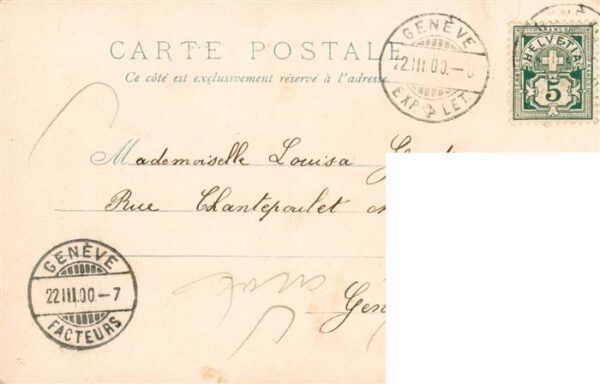 CARTE POSTALE
Ce côté est exclusivement réservé à l'adresse.
GENÈVE
22.III.00.-
EXP. LET.
HELVETIA
5
Mademoiselle Louisa
Rue Chantepoulet
Gen
GENÈVE
22 III.00.-7
FACTEURS